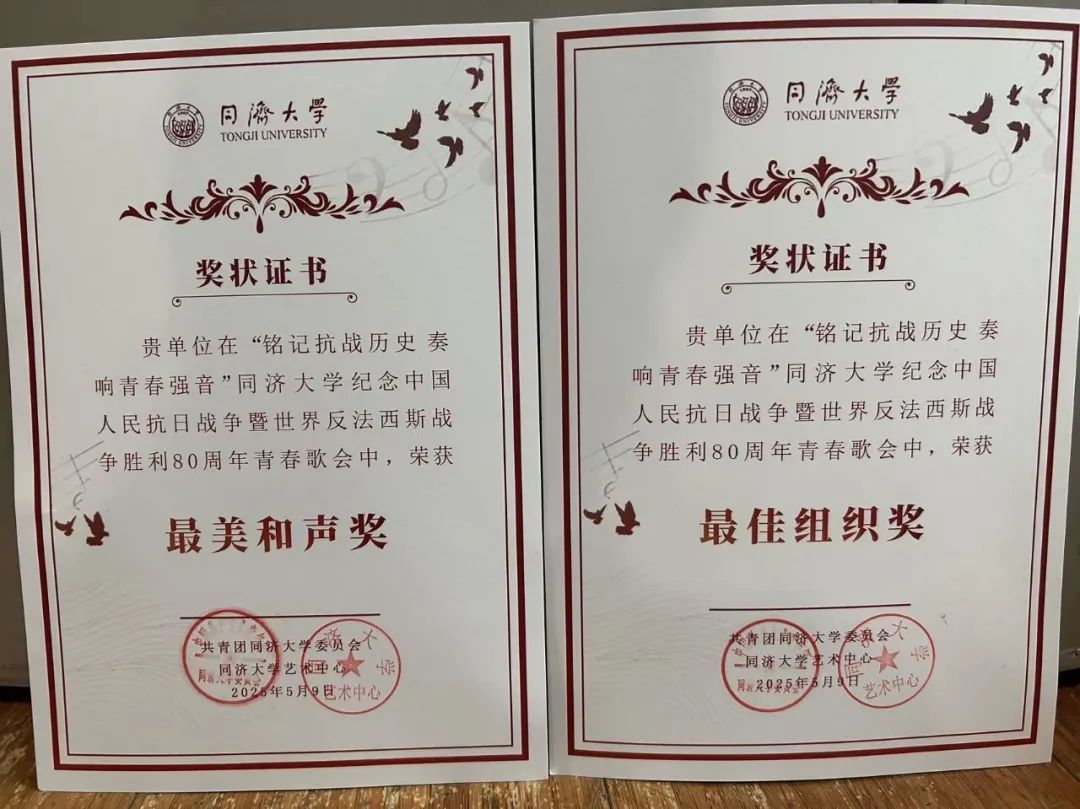 同濟大学
TONGJI UNIVERSITY
奖状证书
贵单位在“铭记抗战历史 奏
响青春强音”同济大学纪念中国
人民抗日战争暨世界反法西斯战
争胜利80周年青春歌会中，荣获
最美和声奖
共青团同济大学委员会
同济大学艺术中心
2025年5月9日
同济大学
艺术中心
同濟大学
TONGJI UNIVERSITY
奖状证书
贵单位在“铭记抗战历史 奏
响青春强音”同济大学纪念中国
人民抗日战争暨世界反法西斯战
争胜利80周年青春歌会中，荣获
最佳组织奖
共青团同济大学委员会
同济大学艺术中心
2025年5月9日
同济大学
艺术中心